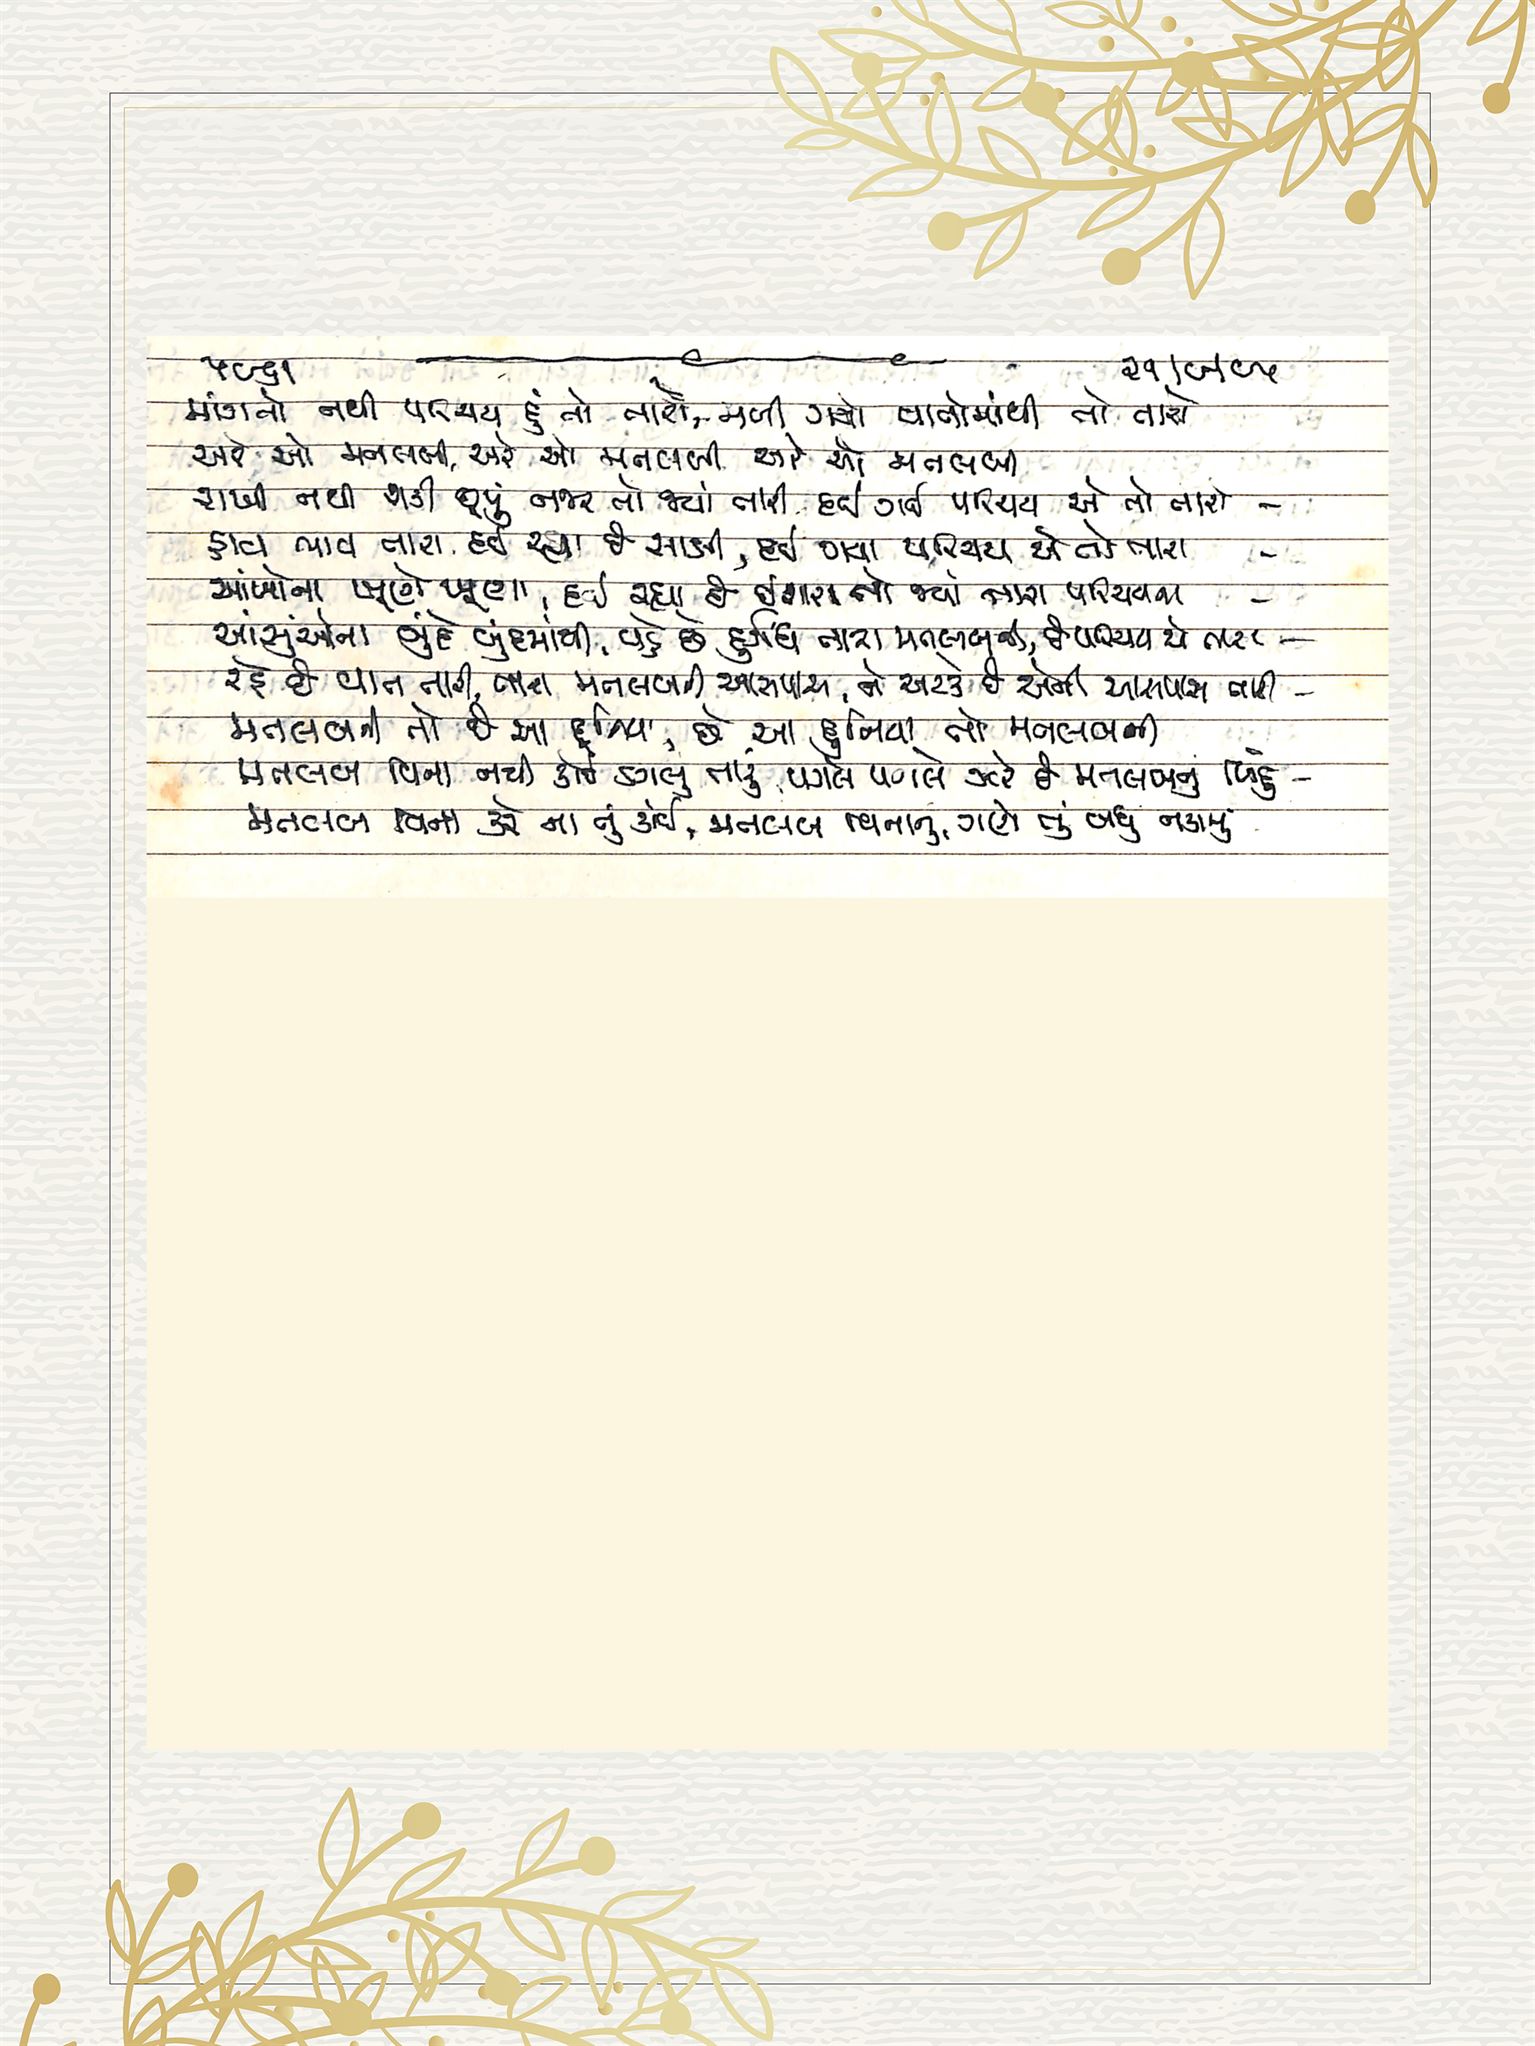 ૫૯૬૧ ૨૧/૯/૯૫
માંગતો નથી પરિચય હું તો તારો, મળી ગયો વાતોમાંથી તો તારો
અરે ઓ મતલબી, અરે ઓ મતલબી અરે ઓ મતલબી
રાખી નથી શકી છૂપું નજર તો જ્યાં તારી દઈ ગઈ પરિચય એ તો તારો –
હાવ ભાવ તારા દઈ રહ્યા છે સાક્ષી, દઈ ગયા પરિચય એ તો તારા –
આંખોના ખૂણે ખૂણા, દઈ રહ્યા છે ઈશારા તો જ્યાં તારા પરિચયના –
આંસુંઓના બુંદે બુંદમાંથી, વહે છે દુર્ગંધ તારા મતલબની, છે પરિચય એ તારા –
રહે છે વાત તારી, તારા મતલબની આસપાસ, ને અટકે છે એની આસપાસ તારી –
મતલબની તો છે આ દુનિયા, છે આ દુનિયા તો મતલબની
મતલબ વિના નથી કોઈ ડગલું તારું, પગલે પગલે ઝરે છે મતલબનું બિંદુ –
મતલબ વિના કરે ના તું કાંઈ, મતલબ વિનાનું, ગણે તું બધું નકામું